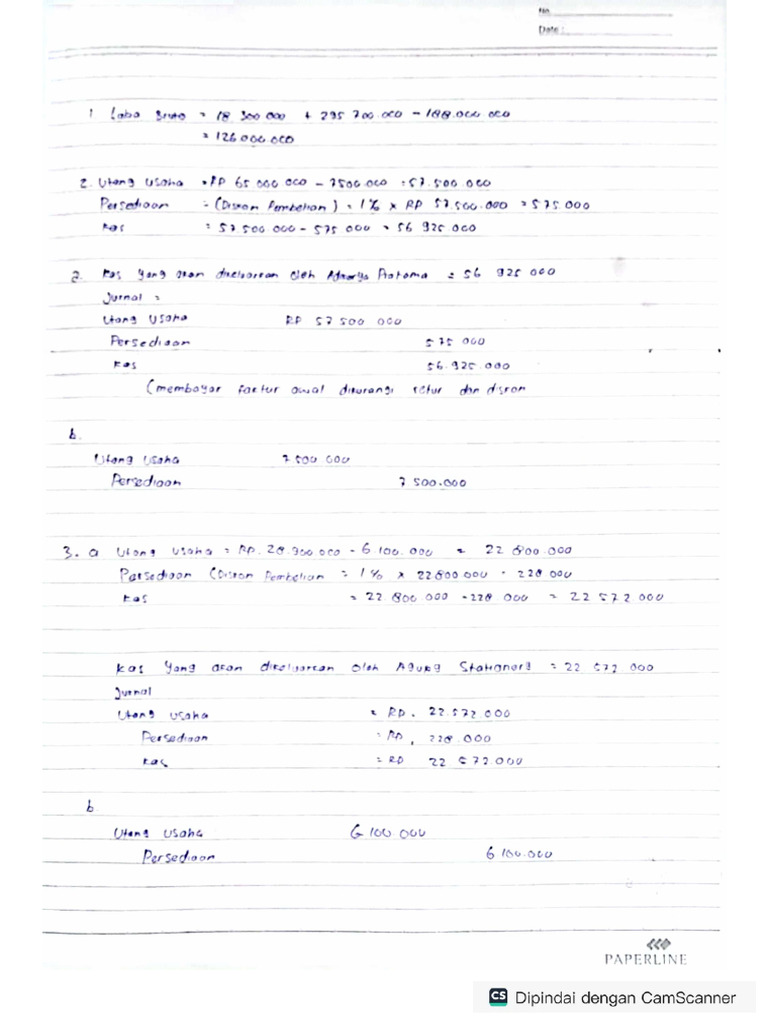 No.
Date :
1 Laba Bruto = 18 300 000 + 295 700.000 - 188.000 000
= 126 000.000
2. Utang Usaha = RP 65 000 000 - 7500.000 = 57.500.000
Persediaan = (Diskon Pembelian) = 1% x RP 57.500.000 = 575 000
Kas = 57 500 000 - 575 000 = 56 925.000
2. Kas yang akan dikeluarkan oleh Pratama = 56 925 000
Jurnal =
Utang Usaha RP 57 500 000
Persediaan 575 000
Kas 56.925.000
(membayar faktur awal dikurangi retur dan diskon
b.
Utang Usaha 7 500 000
Persediaan 7 500.000
3. a Utang Usaha = RP. 28.900 000 - 6 100.000 = 22 800.000
Persediaan (Diskon Pembelian = 1% x 22800 000 - 228 000
Kas = 22.800 000 - 228 000 = 22 572 000
Kas yang akan dikeluarkan oleh Agung Stationery = 22 572 000
Jurnal
Utang Usaha = RP. 22.572 000
Persediaan = RP. 228.000
Kas = RP 22 572.000
b
Utang Usaha 6 100.000
Persediaan 6 100.000
PAPERLINE
CS Dipindai dengan CamScanner